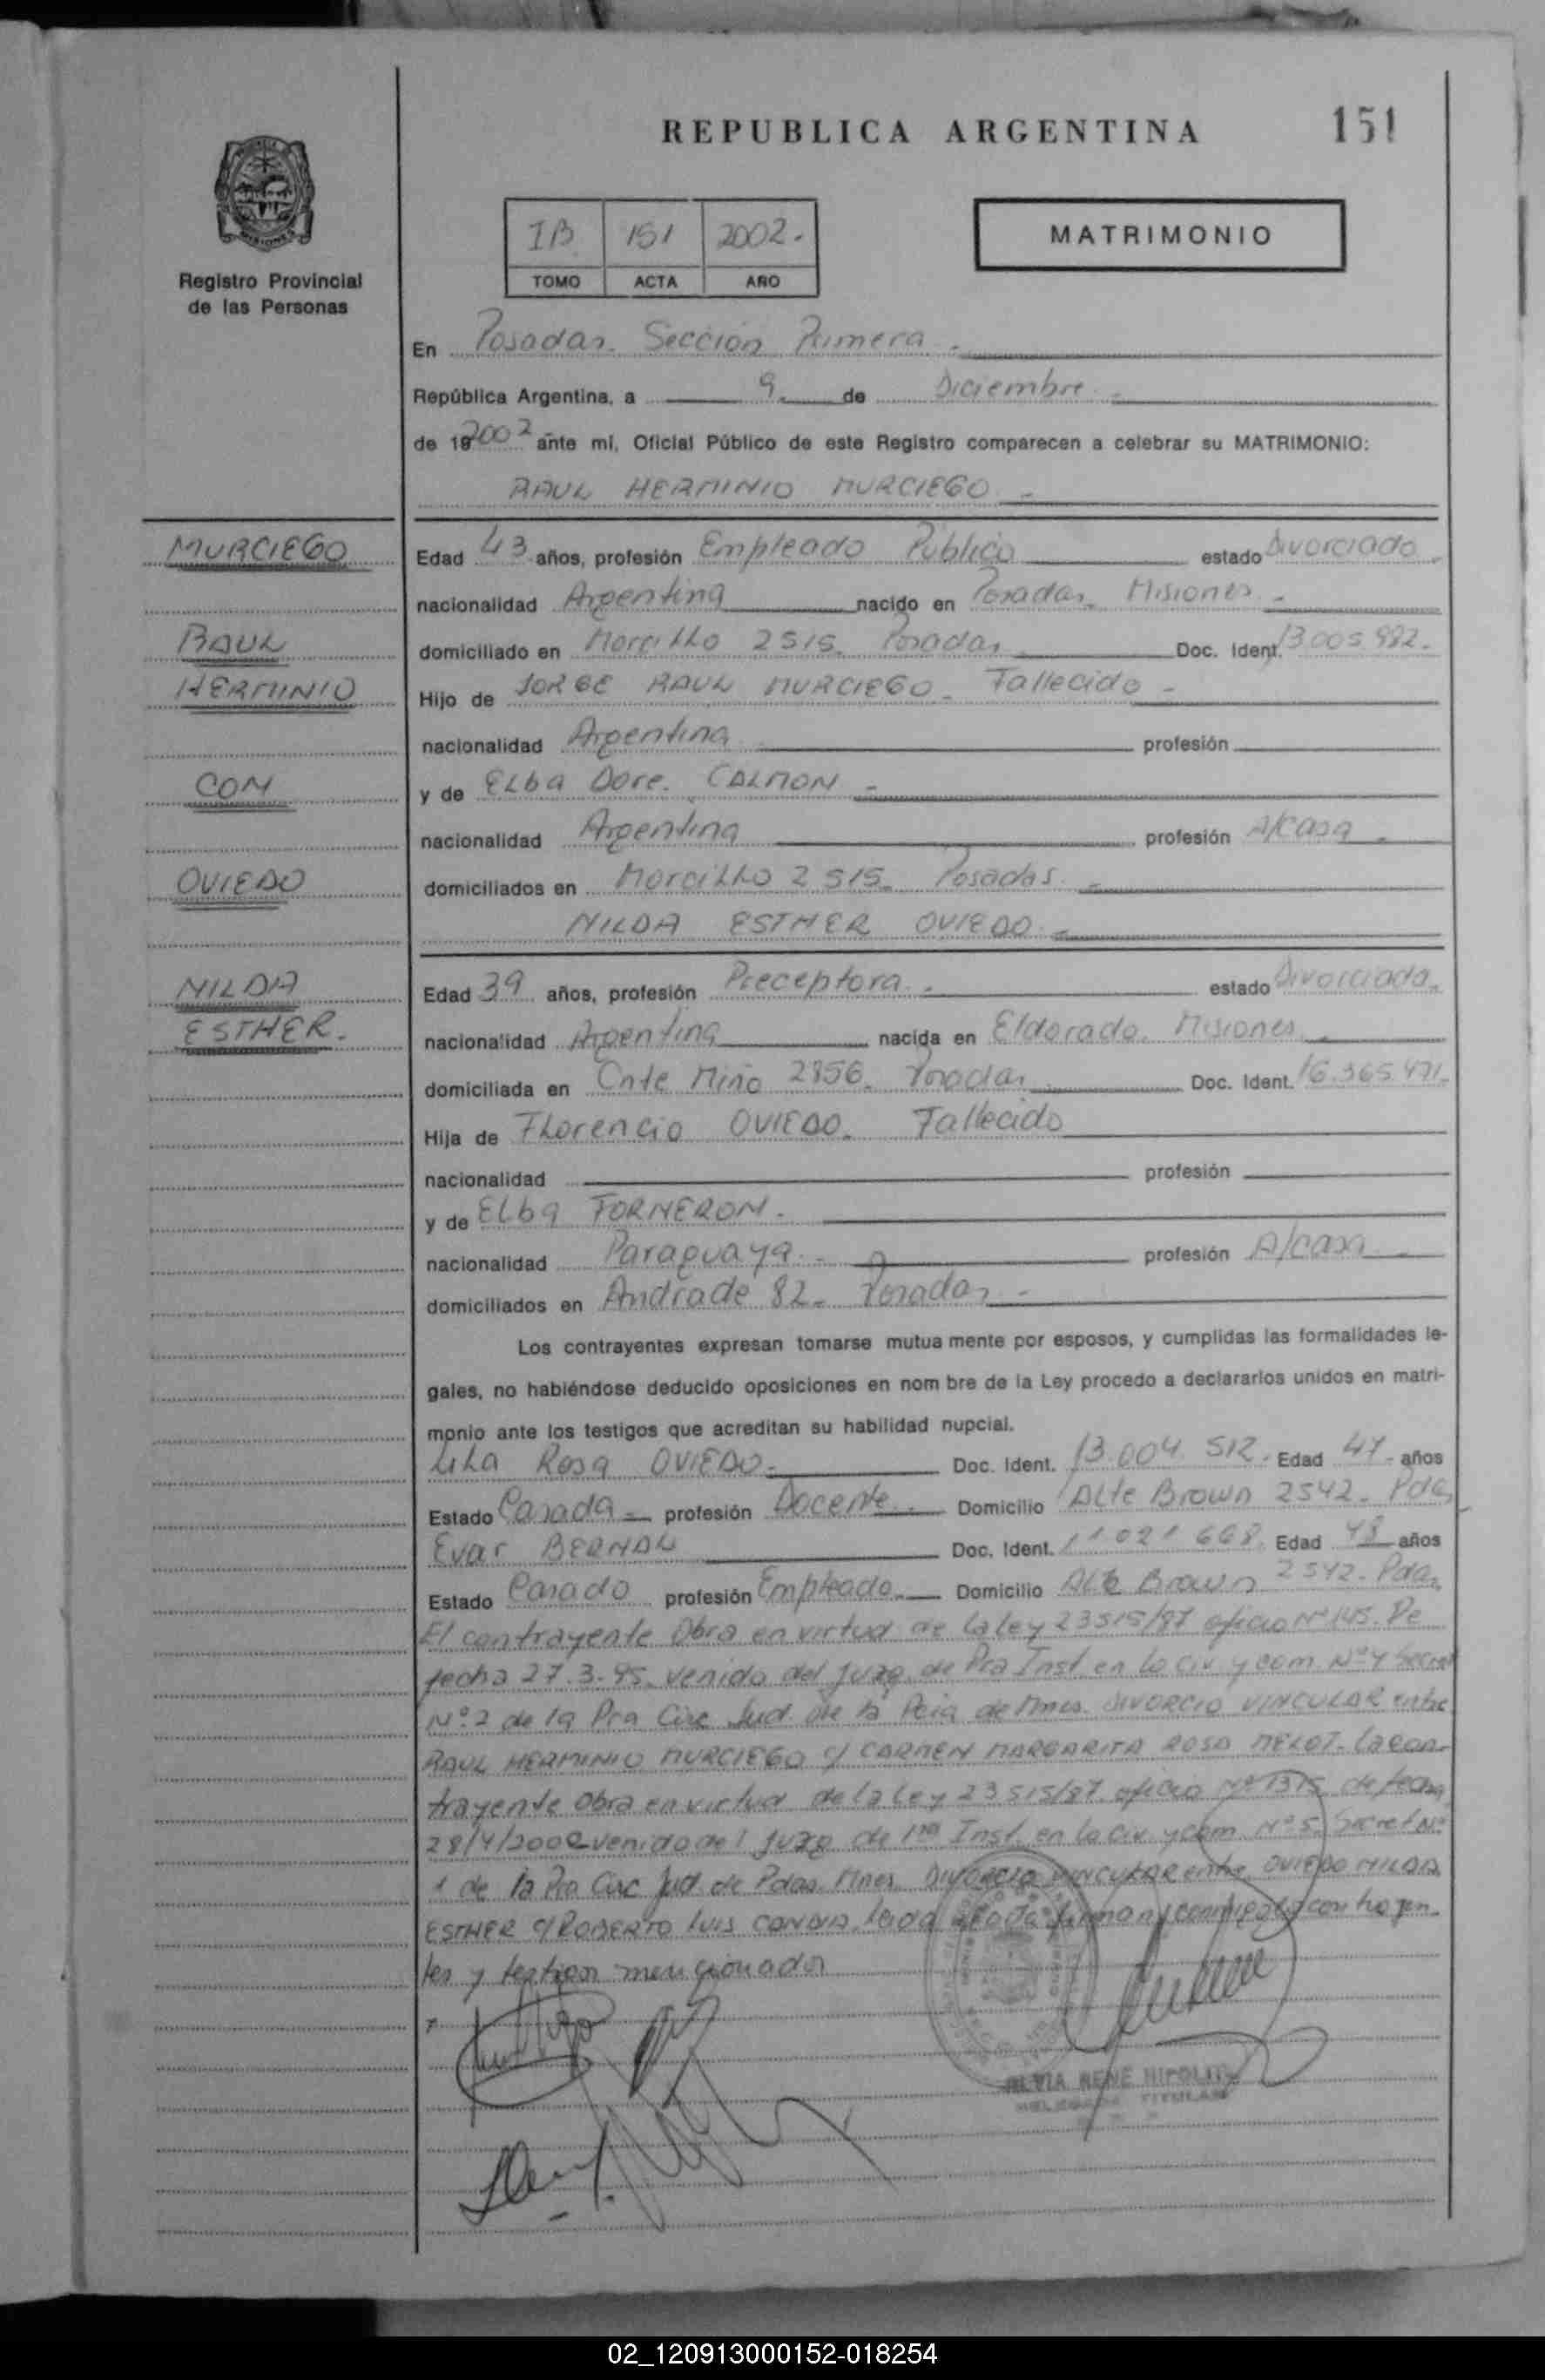 REPUBLICA ARGENTINA
151
IB 151 2002.
TOMO ACTA AÑO
MATRIMONIO
Registro Provincial
de las Personas
En Posadas. Sección Primera.-
República Argentina, a 9. de Diciembre.-
de 19 2002 ante mi, Oficial Público de este Registro comparecen a celebrar su MATRIMONIO:
RAUL HERMINIO MURCIEGO.-
MURCIEGO
Edad 43 años, profesión Empleado Publico estado Divorciado.
nacionalidad Argentina nacido en Posadas. Misiones.-
RAUL
domiciliado en Morcillo 2515. Posadas Doc. Ident. 13.005.982.-
HERMINIO
Hijo de JORGE RAUL MURCIEGO.- Fallecido.-
nacionalidad Argentina profesión
CON
y de Elba Dore. CALMON.-
nacionalidad Argentina profesión A/casa.
OVIEDO
domiciliados en Morcillo 2515. Posadas.-
NILDA ESTHER OVIEDO.-
NILDA
Edad 39 años, profesión Preceptora.- estado Divorciada.
ESTHER.
nacionalidad Argentina nacida en Eldorado. Misiones.
domiciliada en Cnte Miño 2856. Posadas Doc. Ident. 16.365.471.
Hija de Florencio OVIEDO. Fallecido
nacionalidad profesión
y de Elba FORNERON.-
nacionalidad Paraguaya.- profesión A/casa
domiciliados en Andrade 82.- Posadas.-
Los contrayentes expresan tomarse mutua mente por esposos, y cumplidas las formalidades le-
gales, no habiéndose deducido oposiciones en nom bre de la Ley procedo a declararlos unidos en matri-
monio ante los testigos que acreditan su habilidad nupcial.
Lila Rosa OVIEDO.- Doc. Ident. 13.004.512. Edad 47 años
Estado Casada profesión Docente. Domicilio Alte Brown 2542. Pdas
Evar BERNAL Doc. Ident. 11 021 668. Edad 48 años
Estado Casado profesión Empleado. Domicilio Alte Brown 2542. Pdas.
El contrayente Obra en virtud de la ley 23515/87 oficio Nº 145. De
fecha 27.3.95. venido del Juzg. de Pra Inst en lo civ. y com. Nº 4 Secret
Nº 2 de la Pra Circ Jud. de la Pcia de Mnes. DIVORCIO VINCULAR entre
RAUL HERMINIO MURCIEGO c/ CARMEN MARGARITA ROSA MELOT.- La con-
trayente obra en virtud de la ley 23515/87 oficio Nº 1315 de fecha
28/4/2000 venido del Juzg de 1ra Inst. en lo civ. y com. Nº 5. Secret Nº
1 de la Pra Circ Jud. de Pdas. Mnes. DIVORCIO VINCULAR entre OVIEDO NILDA
ESTHER c/ ROBERTO LUIS CANDIA. leida el acta firman conmigo los contrayen-
tes y testigos mencionados
RENE HIPOLIT
TITULAR
02_120913000152-018254